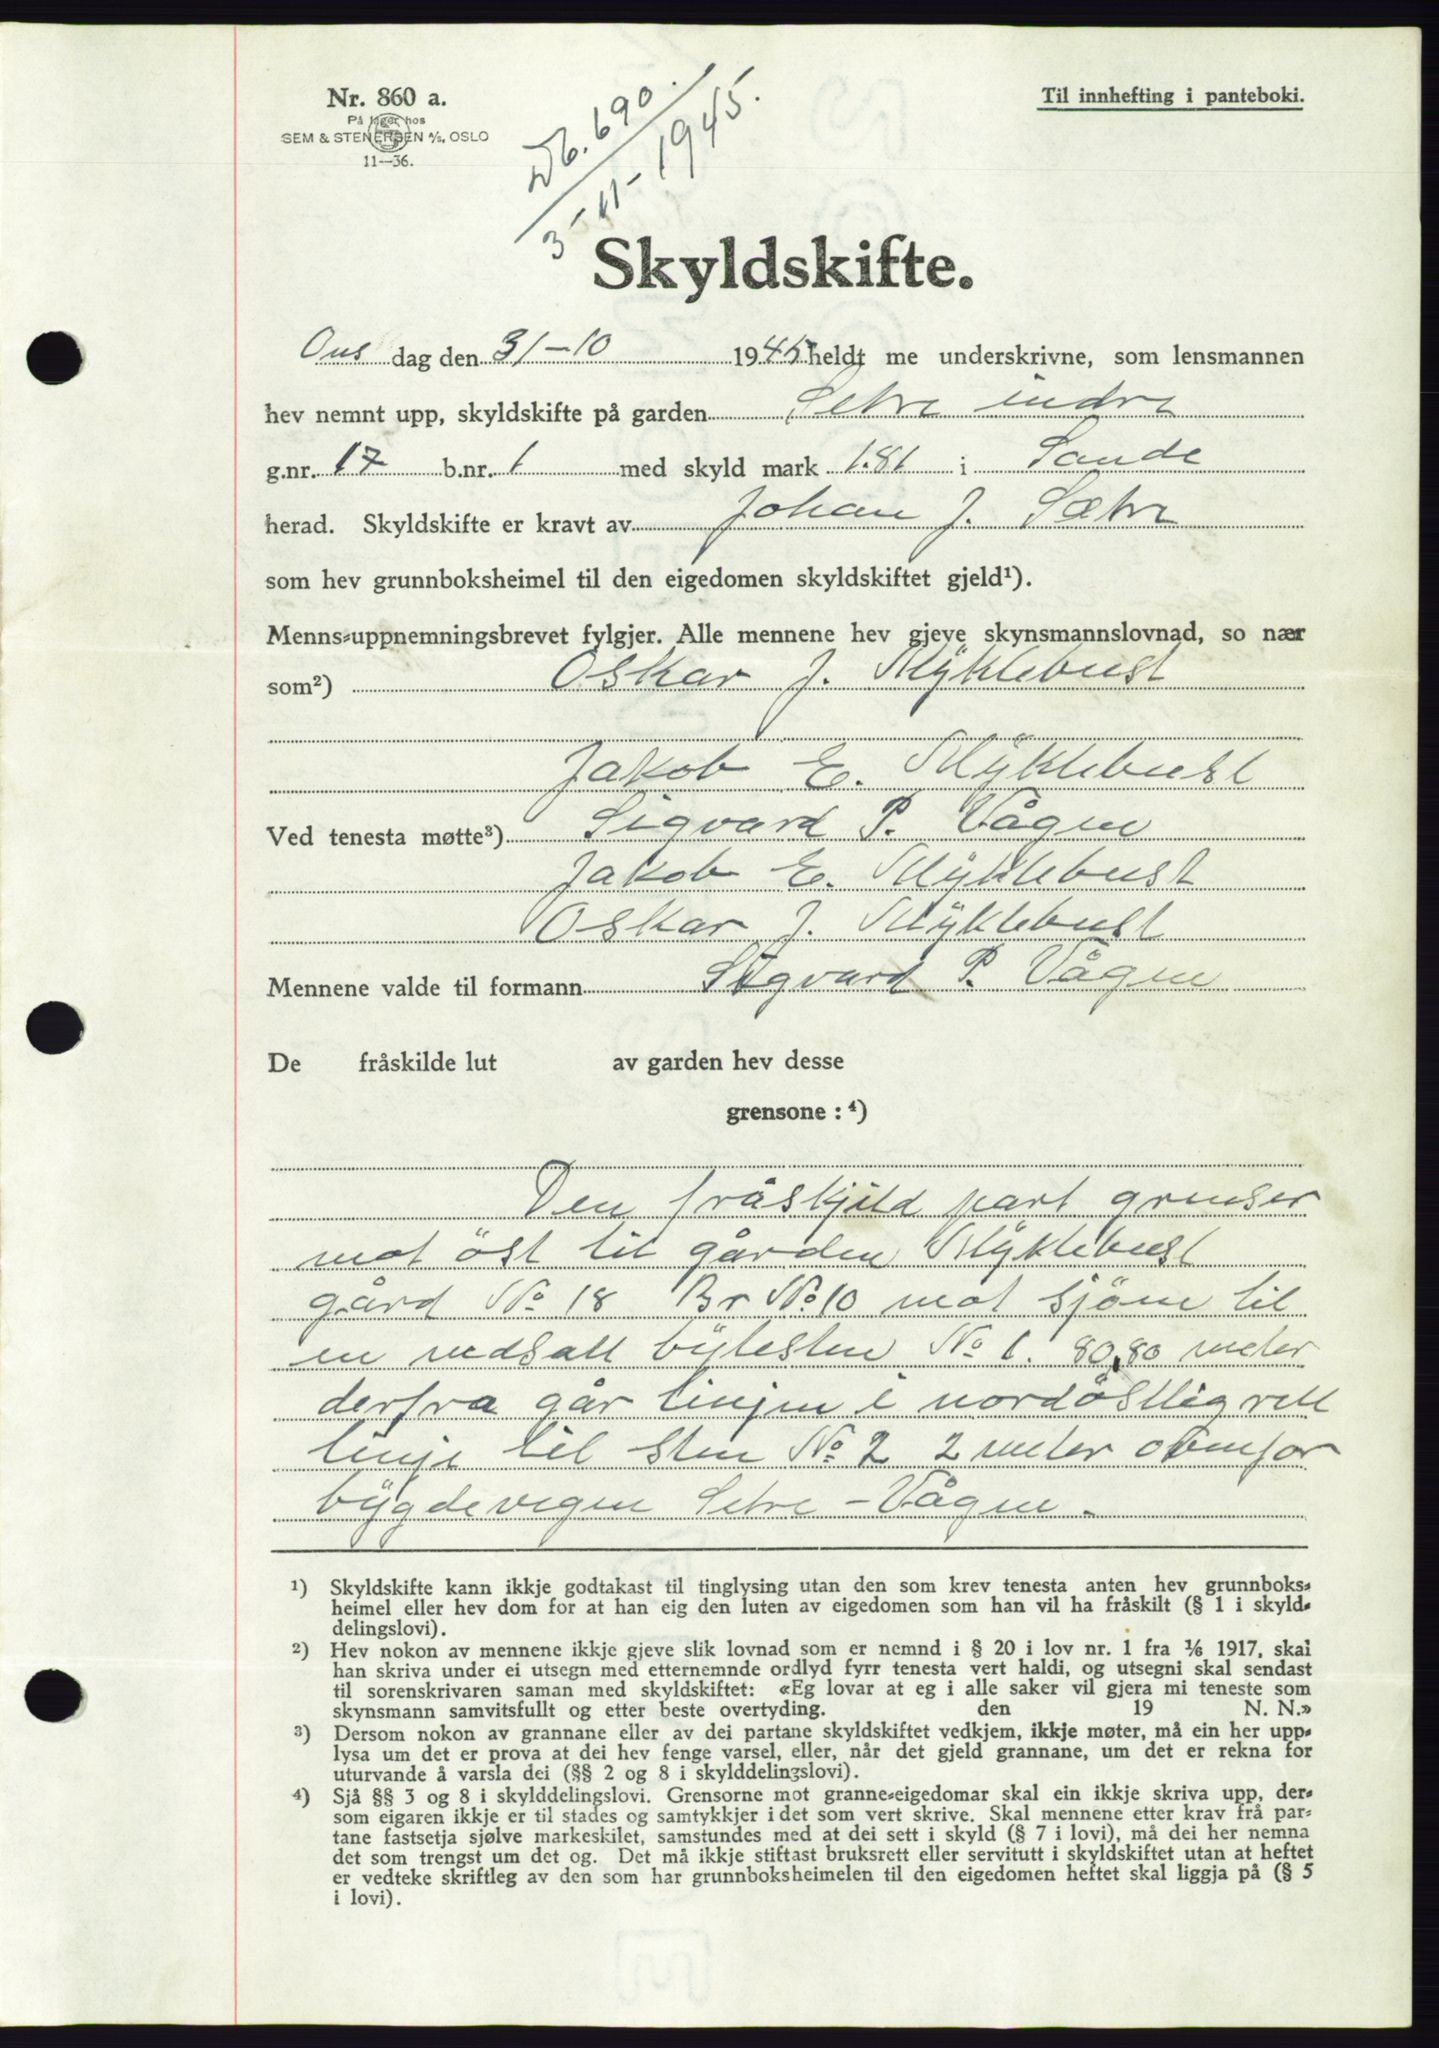 Nr. 860 a.
På lager hos
SEM & STENERSEN A/S, OSLO
11—36.
Til innhefting i panteboki.
Db. 690.
3-11-1945.
Skyldskifte.
Ons dag den 31-10 1945 heldt me underskrivne, som lensmannen
hev nemnt upp, skyldskifte på garden Setre indre
g.nr. 17 b.nr. 1 med skyld mark 1.81 i Sande
herad. Skyldskifte er kravt av Johan J. Sætre
som hev grunnboksheimel til den eigedomen skyldskiftet gjeld¹).
Menns-uppnemningsbrevet fylgjer. Alle mennene hev gjeve skynsmannslovnad, so nær
som²) Oskar J. Mÿklebust
Jakob E. Mÿklebust
Ved tenesta møtte³) Sigvard P. Vågen
Jakob E. Mÿklebust
Oskar J. Mÿklebust
Mennene valde til formann Sigvard P. Vågen
De fråskilde lut av garden hev desse
grensone : ⁴)
Den fråskjild part grenser
mot öst til gården Mÿklebust
gård No 18 Br No 10 mot sjöen til
en nedsatt bÿtesten No 1. 80,80 meter
derfra går linjen i nordöstlig rett
linje til sten No 2 2 meter ovenfor
bÿgdevegen Setre - Vågen.
¹) Skyldskifte kann ikkje godtakast til tinglysing utan den som krev tenesta anten hev grunnboks-
heimel eller hev dom for at han eig den luten av eigedomen som han vil ha fråskilt (§ 1 i skyld-
delingslovi).
²) Hev nokon av mennene ikkje gjeve slik lovnad som er nemnd i § 20 i lov nr. 1 fra 1/6 1917, skal
han skriva under ei utsegn med etternemnde ordlyd fyrr tenesta vert haldi, og utsegni skal sendast
til sorenskrivaren saman med skyldskiftet: «Eg lovar at eg i alle saker vil gjera mi teneste som
skynsmann samvitsfullt og etter beste overtyding. den 19 N. N.»
³) Dersom nokon av grannane eller av dei partane skyldskiftet vedkjem, ikkje møter, må ein her upp-
lysa um det er prova at dei hev fenge varsel, eller, når det gjeld grannane, um det er rekna for
uturvande å varsla dei (§§ 2 og 8 i skylddelingslovi).
⁴) Sjå §§ 3 og 8 i skylddelingslovi. Grensorne mot granne-eigedomar skal ein ikkje skriva upp, der-
som eigaren ikkje er til stades og samtykkjer i det som vert skrive. Skal mennene etter krav frå par-
tane fastsetja sjølve markeskilet, samstundes med at dei sett i skyld (§ 7 i lovi), må dei her nemna
det som trengst um det og. Det må ikkje stiftast bruksrett eller servitutt i skyldskiftet utan at heftet
er vedteke skriftleg av den som har grunnboksheimelen til den eigedomen heftet skal liggja på (§ 5
i lovi).